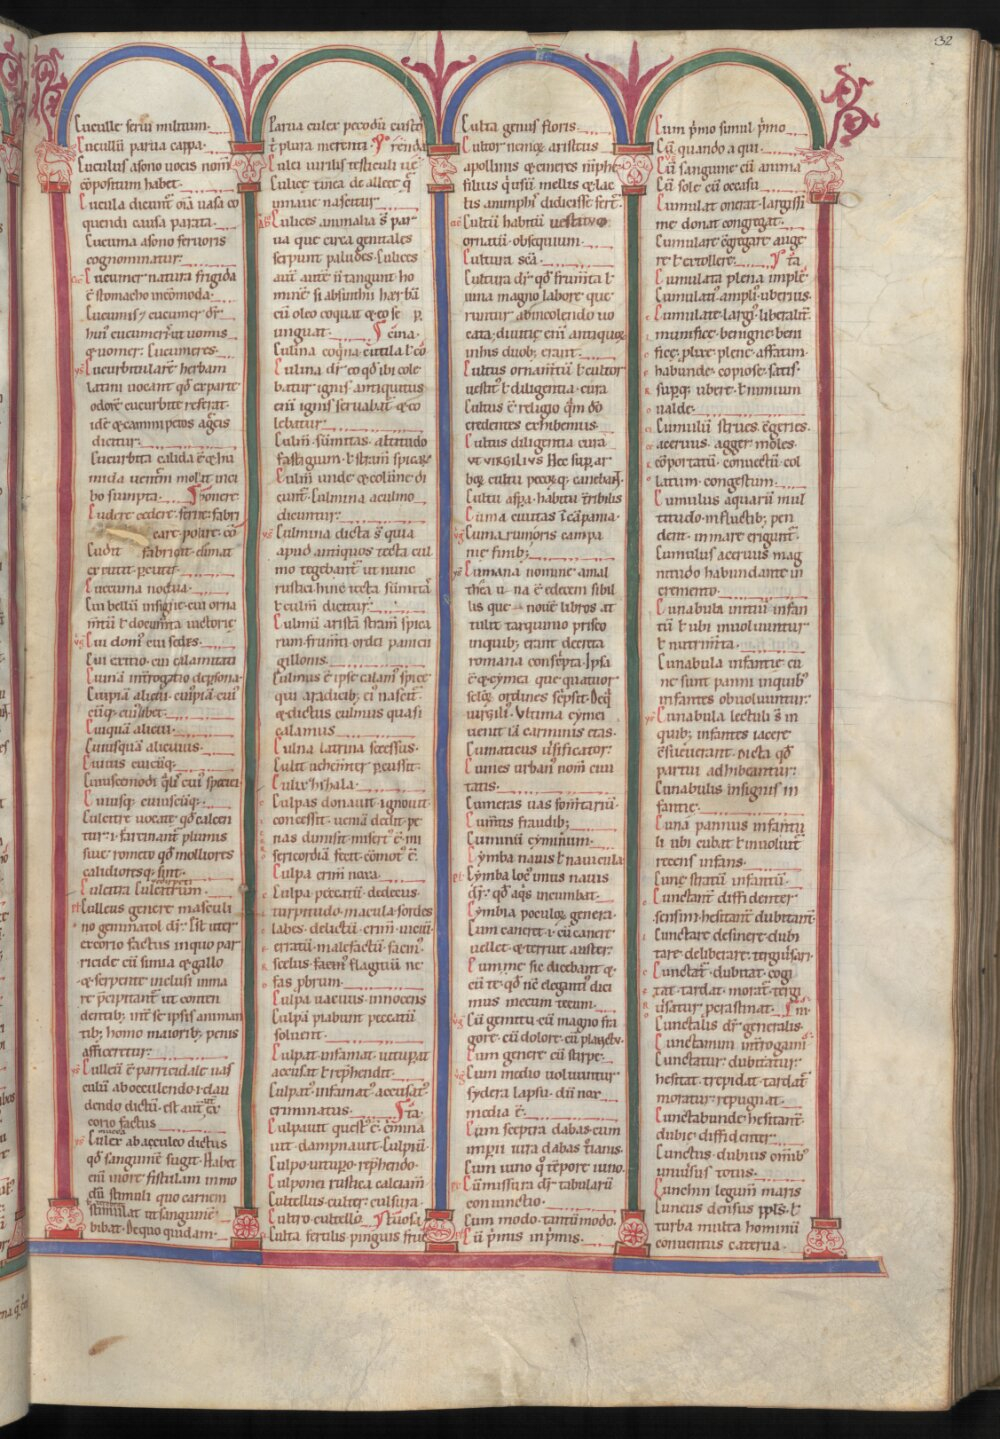 32
Cuculle serui militum.
Cucullũ parua cappa.
Cuculus a sono uocis nom̃
cõpositum habet.
Cucula dicunt̃ oĩa uasa co
quendi causa parata.
Cucuma a sono feruoris
cognominatur.
Cucumer natura frigida
ẽ stomacho incõmoda.
Cucumis
hui cucumeri ut uomis
& uomer. Cucumeres.
Cucurbitularẽ herbam
latini uocant qđ ex parte
odorẽ cucurbite referat.
idẽ & cammipeteos agr̃eis
dicitur.
Cucurbita calida ẽ & hu
mida uentrẽ mollit in ci
bo sumpta. ponere
Cudere cedere. ferire. fabri
care. polire. cõ
Cudit fabricat. elimat
excutit. ꝑcutit.
Cucuma noctua.
Cui bellũ insigne. cui orna
m̃tũ ł documta uictorie
Cui domꝰ cui sedes.
Cui exitio. cui calamitati
Cuiquã alicui.
Cuiusquã alicuius.
Cuiuis cuicũq;
Cuiuscemodi
Cuiusq; cuiuscũq;
Culcitre uocate qđ calcen
tur. i. farcinant̃ plumis
siue tomento qđ molliores
calidioresq; sint.
Culcitra Culcitrum.
Culleus genere masculi
no genimatol dr̃. Est uter
ex corio factus in quo par
ricide cũ simia & gallo
& serpente inclusi in ma
re p̃cipitant̃ ut conten
dentib; int̃ se ipsis animan
tib; homo maiorib; penis
afficeretur.
Culleũ ẽ parricidale uas
culũ ab occulendo. i. clau
dendo dictũ. est aut̃ ex
corio factus
Culex ab aculeo dictus
qđ sanguinẽ sugit. Habet
enĩ in ore fistulam in mo
dũ stimuli quo carnem
stimulat ut sanguinẽ
bibat. De quo quidam.
Parua culex pecodũ custos
ł plura merenti. renda
Culei uirilis testiculi
Culice tinea de allece q̃
in naue nascitur.
Culices animalia s̃ par
ua que circa genitales
serpunt paludes. Culices
aut̃ autẽ ñ tangunt ho
minẽ si absinthii herbã
cũ oleo coquat & eo se ꝑ
unguat.
Culina coq̃na
Culina dr̃. eo qđ ibi cole
batur ignis. antiquitus
enĩ ignis seruabat̃ & co
lebatur
Culm̃. sũmitas. altitudo
fastigium ł stram̃ spicarꝫ
Culm̃ unde & colũne di
cunt̃. Culmina a culmo
dicuntur.
Culmina dicta s̃ quia
apud antiquos tecta cul
mo tegebant̃ ut nunc
rustici. hinc tecta sũmitã
ł culm̃ dicitur.
Culmũ aristã stram̃ spica
rum. frum̃ti. ordei. pani cu
gillonis.
Culmus ẽ ipse calamꝰ spice
qui a radicib; ei nascit̃
& dictus culmus quasi
calamus
Culna latrina secessus.
Culit uehem̃ter ꝑcussit.
Culix hihala.
Culpas donauit. ignouit
concessit. ueniã dedit. pe
nas dimisit. misertꝰ ẽ. mi
sericordiã fecit. cõmotꝰ ẽ
Culpa crim̃ noxa.
Culpa peccatũ. dedecus
turpitudo. macula. sordes
labes. delictũ. crim̃. uiciũ
erratũ. malefactũ. facinꝰ
scelus. facinꝰ. flagitiũ. ne
fas. ꝓbrum.
Culpa uacuus innocens
Culpã piabunt peccatũ
soluent.
Culpat. infamat. uituꝑat
accusat. ł rep̃hendit.
Culpatꝰ. infamatꝰ. accusatꝰ
criminatus.
Culpauit questꝰ ẽ. cõmina
uit. dampnauit. Culpaui
Culpo. uituꝑo. rep̃hendo.
Culponei rustica calciam̃
Cultellus. culter. culsura.
Cultro. cultello.
Culta fertilis pinguis fruc
Culta genus floris.
Cultor nemoꝝ aristeus
apollinis & cineres nĩphe
filius q̃ usũ mellis & lac
tis a nimphis didicisse fert̃.
Cultũ habitũ uestitũ
ornatũ. obsequium.
Cultura sc̃a.
Cultura dr̃. qđ frum̃ta ł
uina magno labore que
runtur ab incolendo uo
cata. diuitie enĩ antiquoꝝ
in his duob; erant.
Cultus ornam̃tũ ł cultor
uestitꝰ ł diligentia. cura
Cultus ẽ religio q̃m dõ
credentes exhibemus
Cultus diligentia cura
ut VIRGILIVS Hec suꝑ ar
boꝝ cultu pecoꝝq; canebã.
Cultu asꝑa. habitu t̃ribilis
Cuma ciuitas ĩ cãpania.
Cuma rumoris campa
nie finib;
Cumana nomine amal
thea una ẽ e decem sibil
lis que nouẽ libros at
tulit tarquinio prisco
in quib; erant decreta
romana consc̃pta. Ipsa
ẽ & cymea que quatuor
selos ordines sc̃psit. De q̃
uirgilꝰ. Vltima cymei
uenit iã carminis etas.
Cumaticus u̇sificator.
Cumes urbanꝰ nom̃ ciui
tatis.
Cumeras uas frum̃tariũ.
Cumtus fraudib;
Cuminũ cyminum.
Cymba nauis ł nauicula
Cymba locꝰ imus nauis
dr̃. qđ aq̃s incumbat.
Cymbia poculoꝝ genera.
Cum caneret. i. cũ canere
uellet. & terruit auster.
Cumme sic dicebant q̃
cũ te. qđ nẽ elegantiꝰ dici
mus mecum tecum.
Cũ gemitu. cũ magno fra
gore. cũ dolore. cũ planctu.
Cum genere cũ stirpe.
Cum medio uoluuntur
sydera lapsu. dũ nox
media ẽ.
Cum sceptra dabas. cum
imꝑii iura dabas t̃ranis.
Cum iuno q̃ tẽpore iuno.
Cũmissura dr̃. tabularũ
coniunctio.
Cum modo. tantũmodo.
Cũ p̃mis in p̃mis.
Cum p̃mo simul p̃mo
Cũ quando a qui.
Cũ sanguine cũ anima
Cũ sole cũ occasu.
Cumulat onerat. largissi
me donat. congregat.
Cumulare. c̃gregare. auge
re. ł extollere.
Cumulata plena impleta
Cumulatiꝰ ampliꝰ uberius.
Cumulate. largiꝰ. liberalit̃.
munifice. benigne. beni
fice. plixe. plene. affatim
habunde. copiose. satis.
suꝑq; ubere. ł nimium
ualde.
Cumulũ strues. c̃geries.
aceruus. agger. moles.
cõportatũ. conuectũ. col
latum. congestum.
Cumulus aquarũ mul
titudo. in fluctib; pen
dent. in mare erigunt̃.
Cumulus aceruus mag
nitudo habundante in
cremento.
Cunabula initiũ infan
tũ ł ubi inuoluuntur
ł nutrim̃ta.
Cunabula infantie cu
ne. sunt panni in quibꝰ
infantes obuoluuntur.
Cunabula lectuli s̃ in
quib; infantes iacere
c̃sueuerant. Dicta qđ
partui adhibeantur.
Cunabulis insignis in
fantie.
Cuna pannus infantũ
ł ubi cubat ł inuoluit̃
recens infans.
Cune stratũ infantũ.
Cunctant̃ diffidenter
sensim. hesitant̃. dubitant̃.
Cunctare desinere. dubi
tare. deliberare. tergiu̇sari.
Cunctat̃. dubitat. cogi
tat. tardat. morat̃. tergi
u̇satur. ꝑcrastinat.
Cunctalis dr̃. generalis.
Cunctanum int̃rogamꝰ
Cunctatur. dubitatur.
hesitat. trepidat. tardat̃
moratur. repugnat.
Cunctabunde. hesitant̃.
dubie. diffidenter.
Cunctus. dubius. om̃ibꝰ
uniu̇sus. totus.
Cunchin legum̃ maris
Cuneus densus ppl̃s. ł
turba multa hominũ
conuentus. caterua.